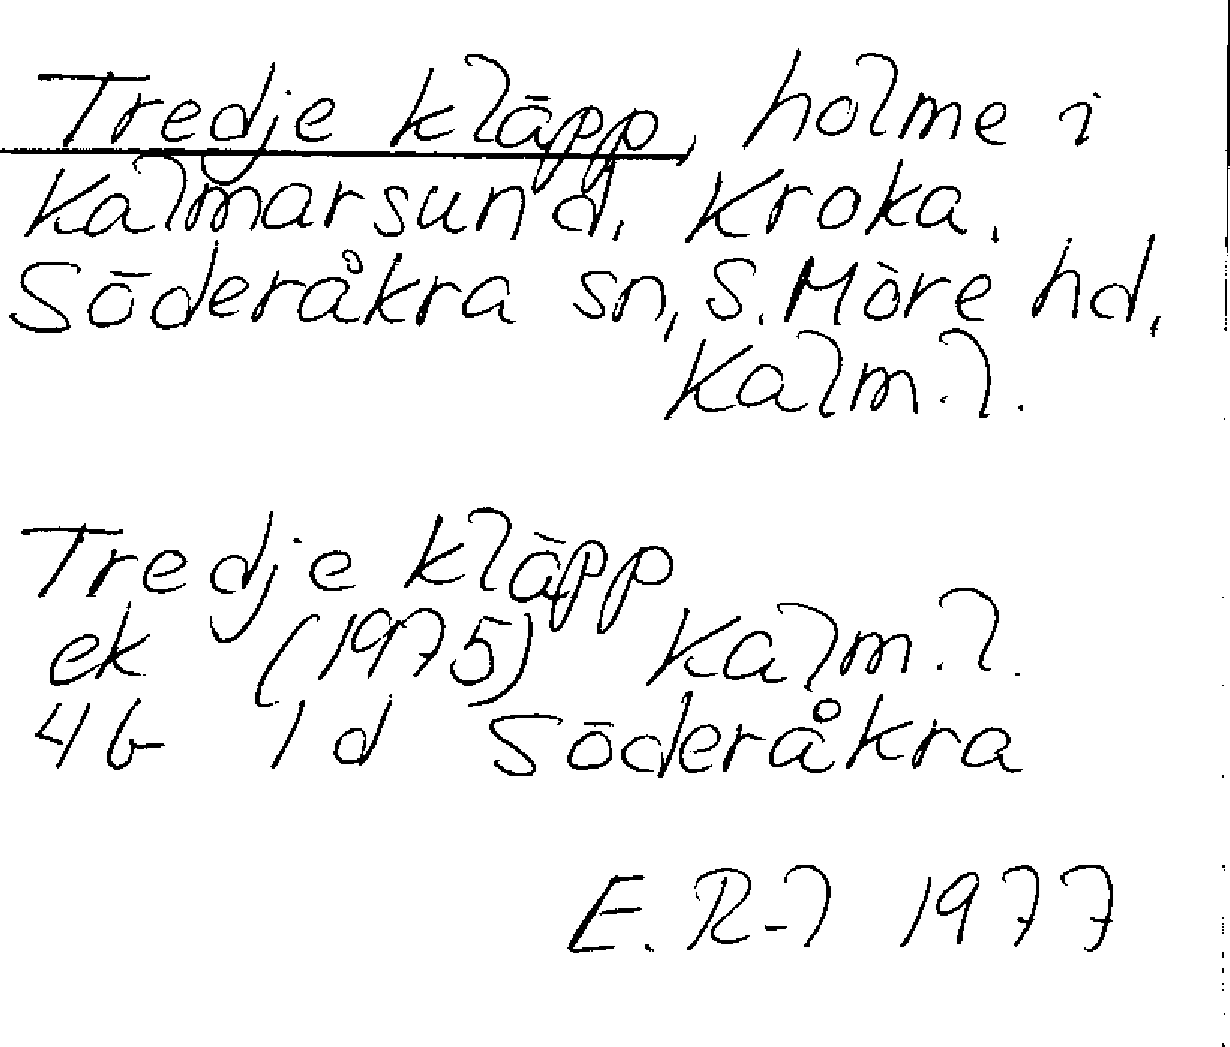 Tredje kläpp, holme i
Kalmarsund, Kroka,
Söderåkra sn, S. Möre hd,
Kalm. l.
Tredje kläpp
ek (1975) Kalm. l.
4b 1d Söderåkra
E. R-l 1977